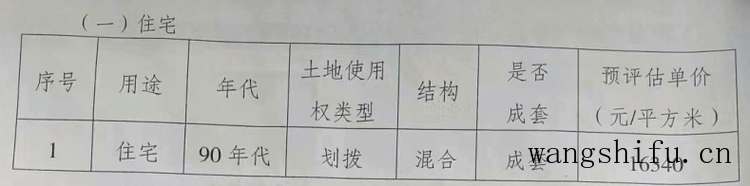 （一）住宅
序号 用途 年代 土地使用权类型 结构 是否成套 预评估单价（元/平方米）
1 住宅 90年代 划拨 混合 成套 16340
wangshifu.cn